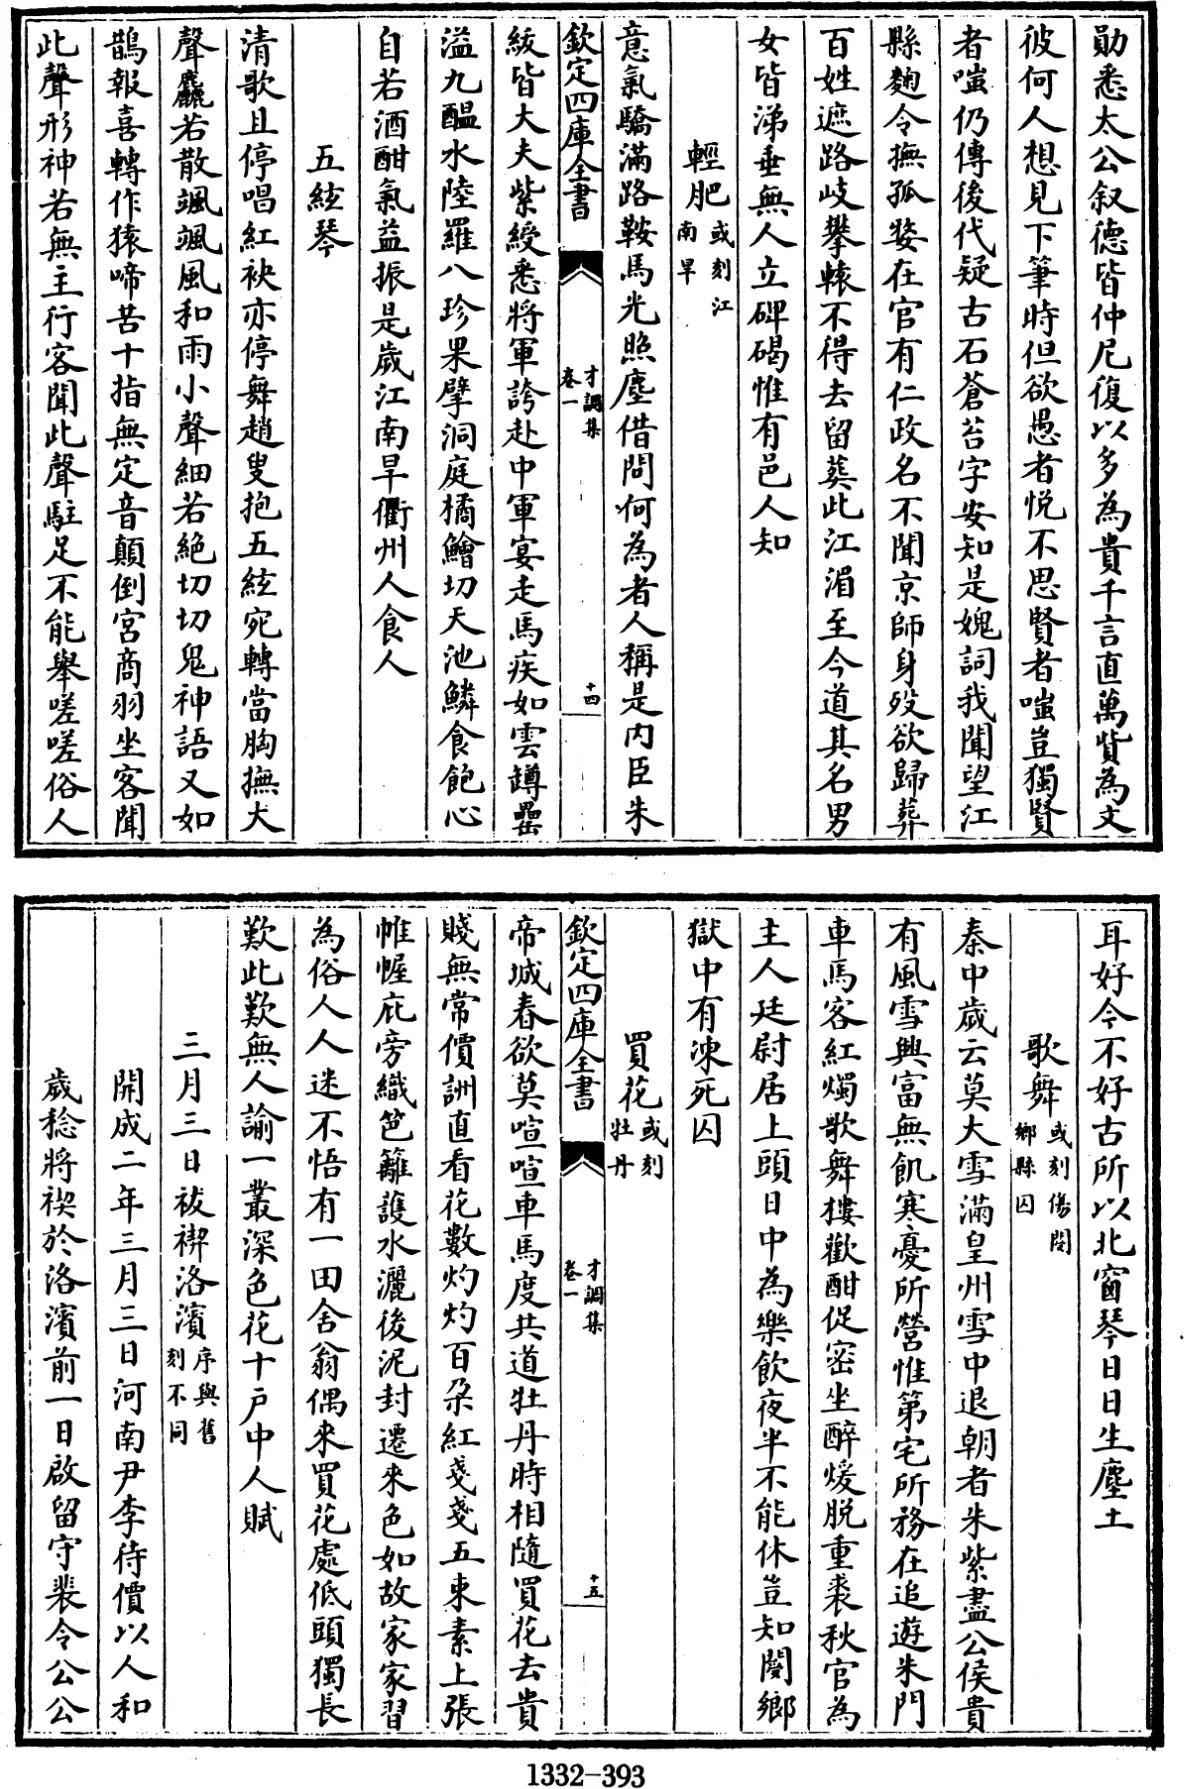 勛悉太公叙德皆仲尼復以多為貴千言直萬貲為文
彼何人想見下筆時但欲愚者悦不思賢者嗤豈獨賢
者嗤仍傳後代疑古石蒼苔字安知是媿詞我聞望江
縣麴令撫孤嫠在官有仁政名不聞京師身歿欲歸葬
百姓遮路岐攀轅不得去留葬此江湄至今道其名男
女皆涕垂無人立碑碣惟有邑人知
輕肥或刻江南旱
意氣驕滿路鞍馬光照塵借問何為者人稱是内臣朱
欽定四庫全書
才調集
卷一
十四
紱皆大夫紫綬悉將軍誇赴中軍宴走馬疾如雲罇罍
溢九醖水陸羅八珍果擘洞庭橘鱠切天池鱗食飽心
自若酒酣氣益振是歲江南旱衢州人食人
五絃琴
清歌且停唱紅袂亦停舞趙叟抱五絃宛轉當胸撫大
聲麤若散颯颯風和雨小聲細若絶切切鬼神語又如
鵲報喜轉作猿啼苦十指無定音顛倒宮商羽坐客聞
此聲形神若無主行客聞此聲駐足不能舉嗟嗟俗人
耳好今不好古所以北窗琴日日生塵土
歌舞或刻傷閿鄉縣囚
秦中歲云莫大雪滿皇州雪中退朝者朱紫盡公侯貴
有風雪興富無飢寒憂所營惟第宅所務在追遊朱門
車馬客紅燭歌舞樓歡酣促密坐醉煖脱重裘秋官為
主人廷尉居上頭日中為樂飲夜半不能休豈知閿鄉
獄中有凍死囚
買花或刻牡丹
欽定四庫全書
才調集
卷一
十五
帝城春欲莫喧喧車馬度共道牡丹時相隨買花去貴
賤無常價詶直看花數灼灼百朶紅戔戔五束素上張
帷幄庇旁織笆籬護水灑後泥封遷來色如故家家習
為俗人人迷不悟有一田舍翁偶來買花處低頭獨長
歎此歎無人諭一叢深色花十戸中人賦
三月三日祓禊洛濱序與舊刻不同
開成二年三月三日河南尹李待價以人和
歲稔將禊於洛濱前一日啟留守裴令公公
1332-393